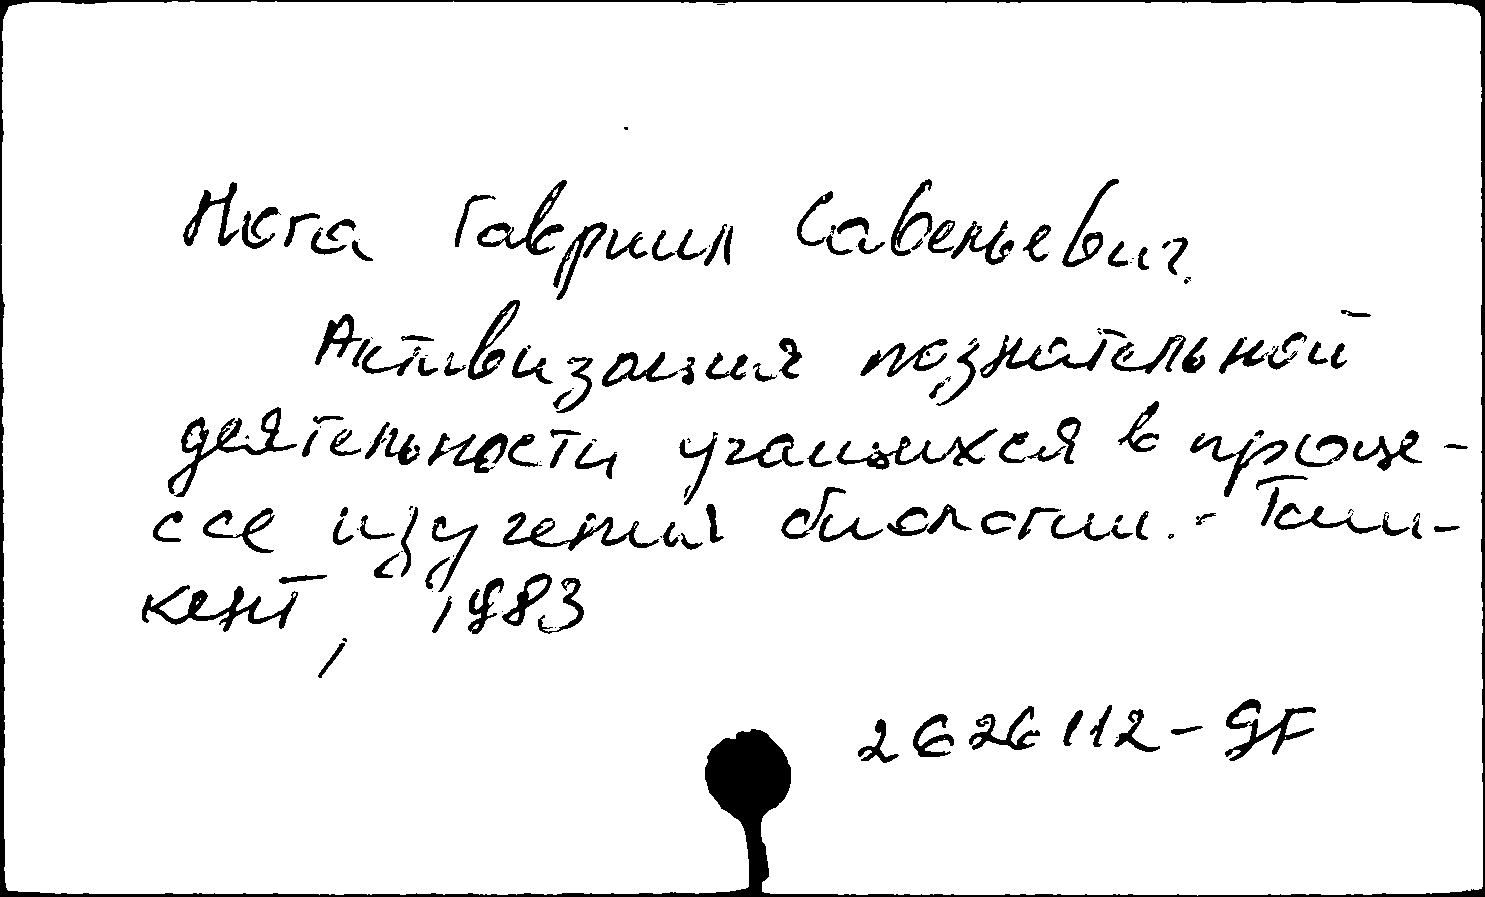 Нога Гавриил Савельевич.
Активизация познательной
деятельности учащихся в проце-
ссе изучения биологии. - Таш-
кент, 1983
2626112-дF